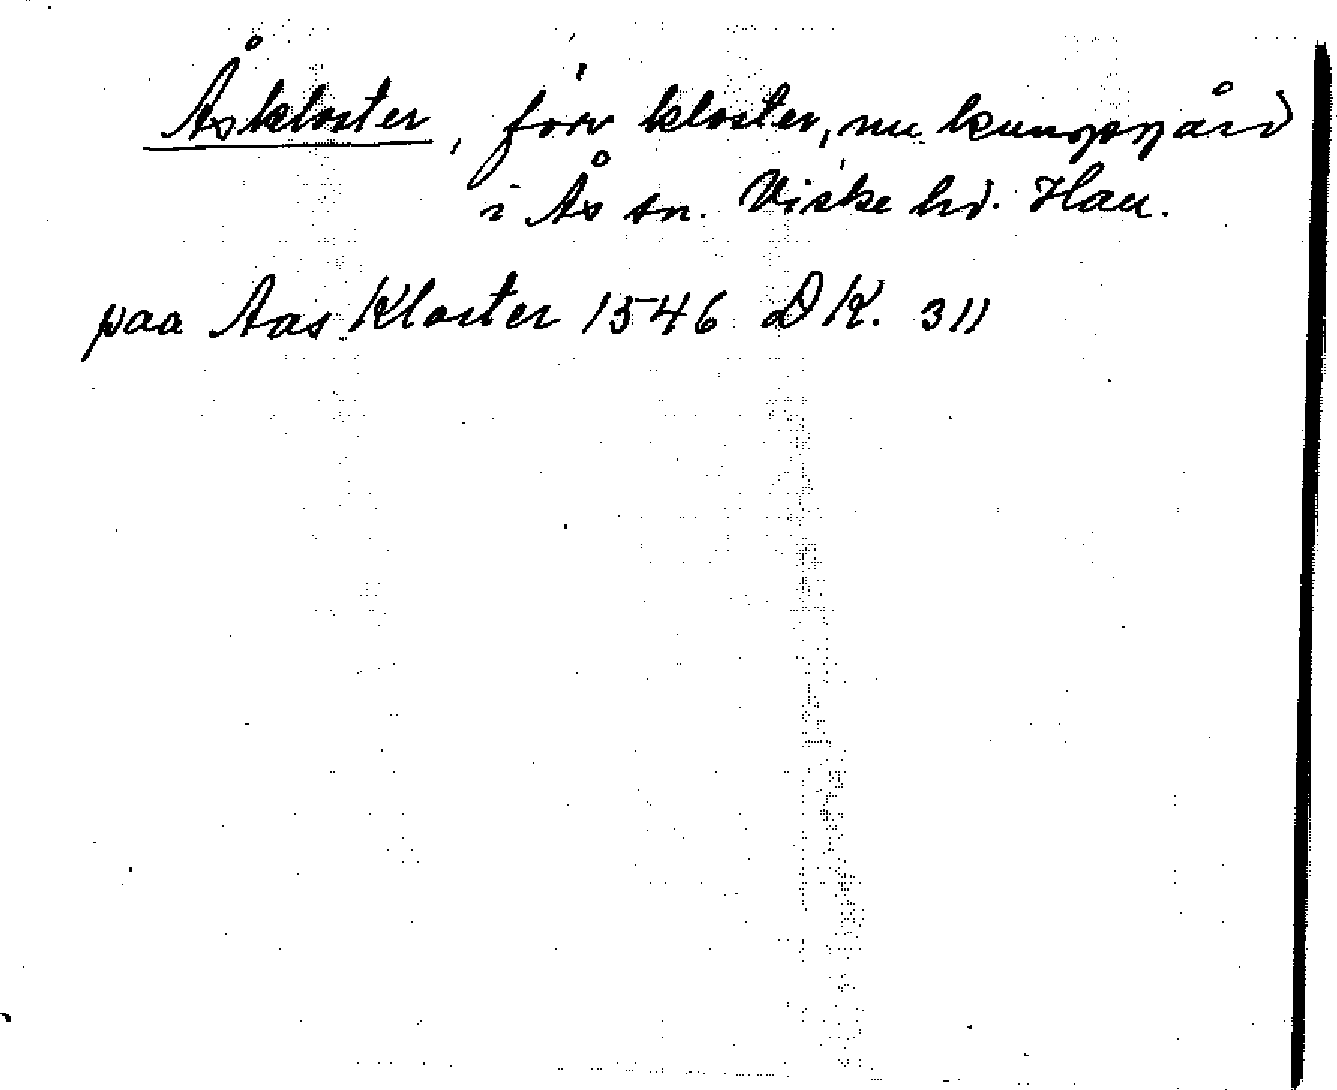 Åskloster, förr kloster, nu kungsgård
i Ås sn. Viske hd. Hall.
paa Aas Kloster 1546 DK. 311